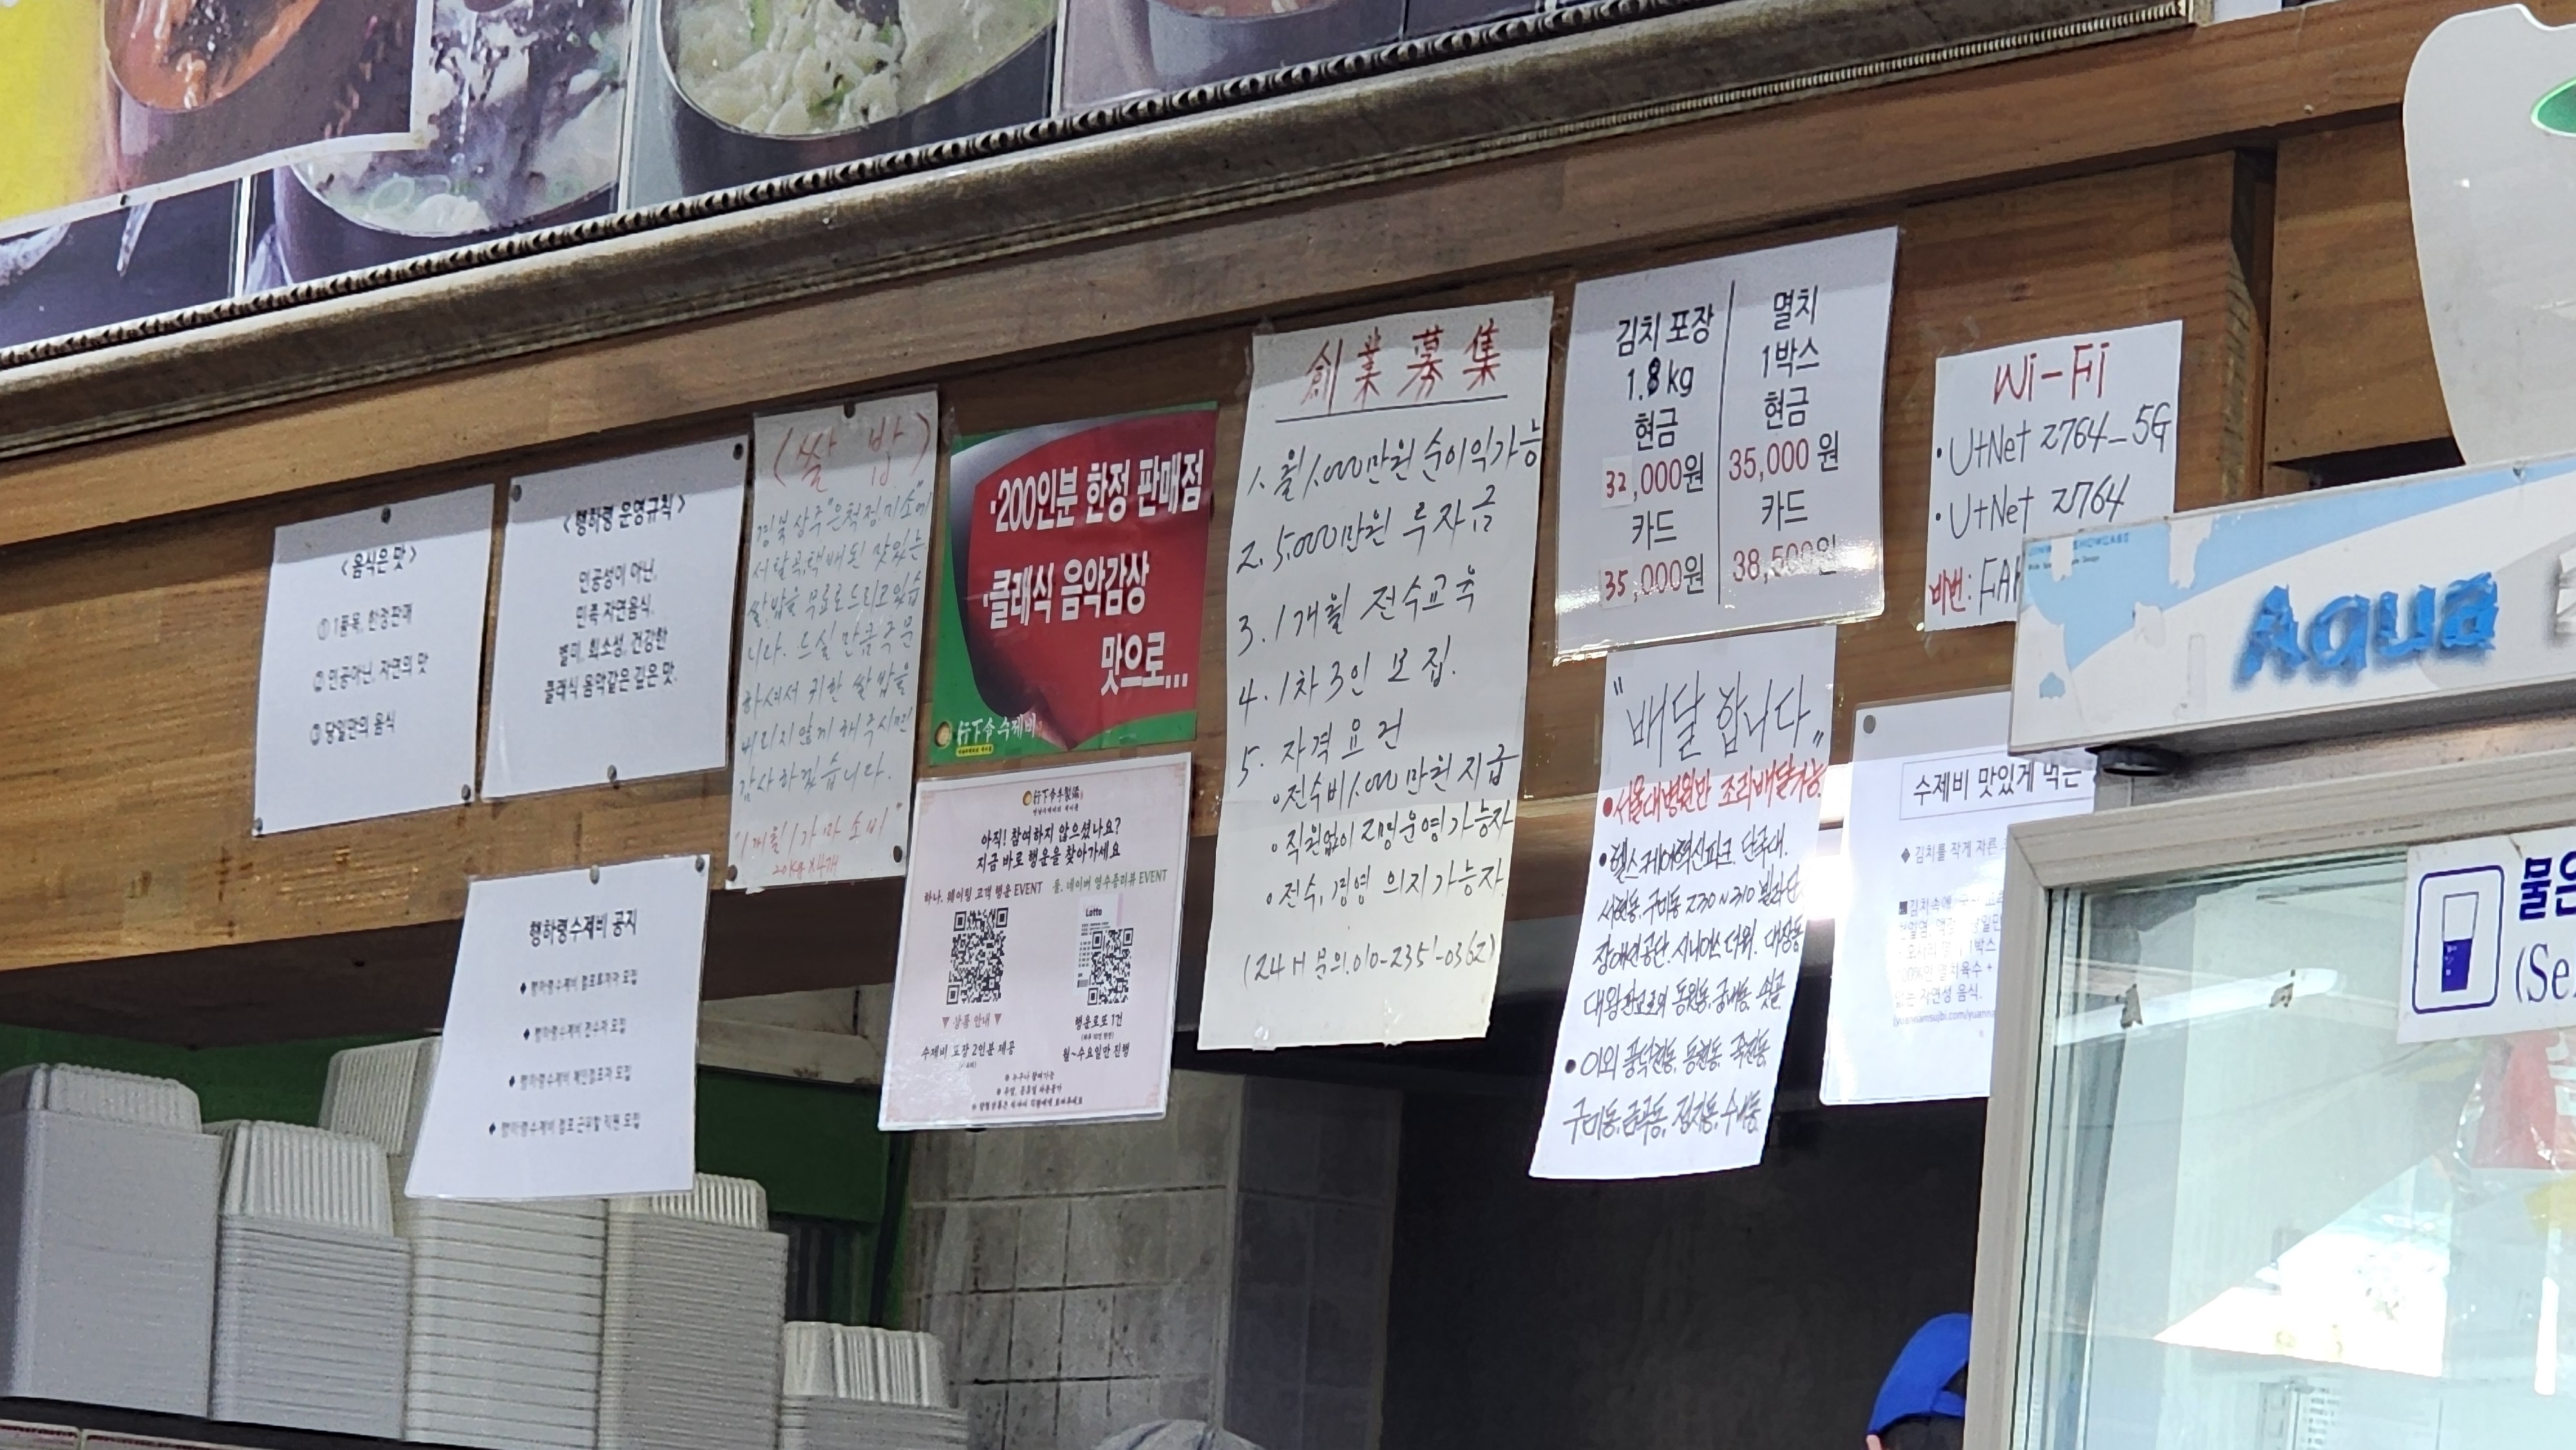 <음식은 맛>
① 1품목, 한정판매
② 인공아닌, 자연의 맛
③ 당일만의 음식
<행하령 운영규칙>
인공성이 아닌,
민족 자연음식.
별미, 희소성, 건강한
클래식 음악같은 깊은 맛.
(쌀 밥)
경북 상주 "은척정미소"에
서 탈곡, 택배된 맛있는
쌀밥을 무료로 드리고 있습
니다. 드실 만큼 주문
하셔서 귀한 쌀밥을
버리지 않게 해주시면
감사하겠습니다.
"1개월 1가마 소비"
20kg x 4개
·200인분 한정 판매점
·클래식 음악감상
맛으로...
行下令 수제비
創業募集
1. 월 1,000만원 순이익가능
2. 5,000만원 투자금
3. 1개월 전수교육
4. 1차 3인 모집.
5. 자격요건
◦전수비 1,000만원 지급
◦직원없이 2명운영가능자
◦전수, 경영 의지가능자
(24H 문의.010-2351-0362)
김치 포장
1.8kg
현금
32,000원
카드
35,000원
멸치
1박스
현금
35,000원
카드
38,500원
Wi-Fi
·U+Net 2764_5G
·U+Net 2764
비번:
"배달합니다"
•서울대병원만 조리배달가능
•헬스케어혁신파크, 단국대.
서현동, 구미동 230~310 빌라단
장애인공단. 시니어스타워. 대장동
대왕판교로의 동원동, 궁내동, 쇳골
•이외 풍덕천동, 동천동, 죽전동,
구미동, 금곡동, 정자동, 수내동
行下令手製飛
아직! 참여하지 않으셨나요?
지금 바로 행운을 찾아가세요
하나. 웨이팅 고객 행운 EVENT
둘. 네이버 영수증리뷰 EVENT
Lotto
▼ 상품 안내 ▼
수제비 포장 2인분 제공
행운로또 1건
월~수요일만 진행
※ 누구나 참여가능
행하령수제비 공지
◆ 행하령수제비 점포투자자 모집
◆ 행하령수제비 전수자 모집
◆ 행하령수제비 체인점포자 모집
◆ 행하령수제비 점포 근무할 직원 모집
수제비 맛있게 먹는
◆ 김치를 작게 자른
■김치속에
자연성 음식.
Aqua
물은
(Se